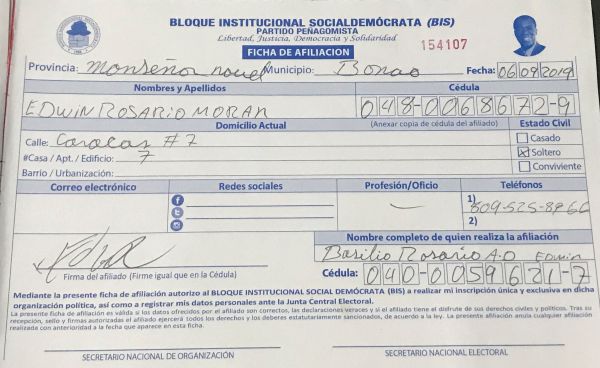 BLOQUE INSTITUCIONAL SOCIALDEMÓCRATA (BIS)
PARTIDO PEÑAGOMISTA
Libertad, Justicia, Democracia y Solidaridad
FICHA DE AFILIACION
154107
Provincia: Monseñor nouel Municipio: Bonao Fecha: 06/09/2019
Nombres y Apellidos Cédula
EDWIN ROSARIO MORAN 048-0068672-9
Domicilio Actual (Anexar copia de cédula del afiliado) Estado Civil
Calle: Caracas #7 Casado
#Casa / Apt. / Edificio: 7 Soltero
Barrio / Urbanización: Conviviente
Correo electrónico Redes sociales Profesión/Oficio Teléfonos
1) 809-525-8966
2)
Nombre completo de quien realiza la afiliación
Basilio Rosario A.O EDWIN
Firma del afiliado (Firme igual que en la Cédula) Cédula: 040-0059621-7
Mediante la presente ficha de afiliación autorizo al BLOQUE INSTITUCIONAL SOCIAL DEMÓCRATA (BIS) a realizar mi inscripción única y exclusiva en dicha
organización política, así como a registrar mis datos personales ante la Junta Central Electoral.
La presente ficha de afiliación es válida si los datos ofrecidos por el afiliado son correctos, las declaraciones veraces y si el afiliado tiene el disfrute de sus derechos civiles y políticos. Tras su
recepción, sello y firmas autorizadas el afiliado ejercerá todos los derechos y los deberes estatutariamente sancionados, de acuerdo a la ley. La presente afiliación anula cualquier afiliación
realizada con anterioridad a la fecha que aparece en esta ficha.
SECRETARIO NACIONAL DE ORGANIZACIÓN SECRETARIO NACIONAL ELECTORAL